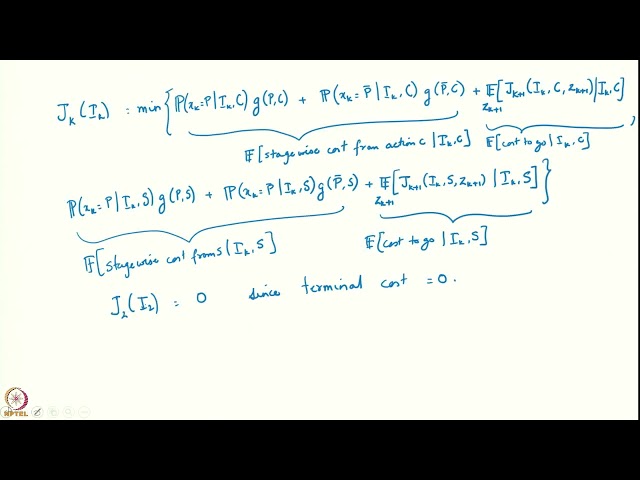 J_k(I_k) = min{ P(x_k=P | I_k, C) g(P,C) + P(x_k=P̄ | I_k, C) g(P̄,C) + E_{z_{k+1}}[J_{k+1}(I_k, C, z_{k+1}) | I_k, C],
E[stagewise cost from action C | I_k, C] E[cost to go | I_k, C]
P(x_k=P | I_k, S) g(P,S) + P(x_k=P | I_k, S) g(P̄,S) + E_{z_{k+1}}[J_{k+1}(I_k, S, z_{k+1}) | I_k, S] }
E[stagewise cost from S | I_k, S] E[cost to go | I_k, S]
J_2(I_2) = 0 since terminal cost = 0.
NPTEL